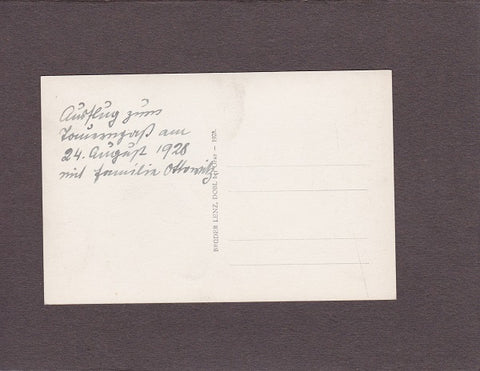 Ausflug zum
Tauernpaß am
24. August 1928
mit Familie Ottowitz
BRÜDER LENZ, DOBL bei Graz — 1928.